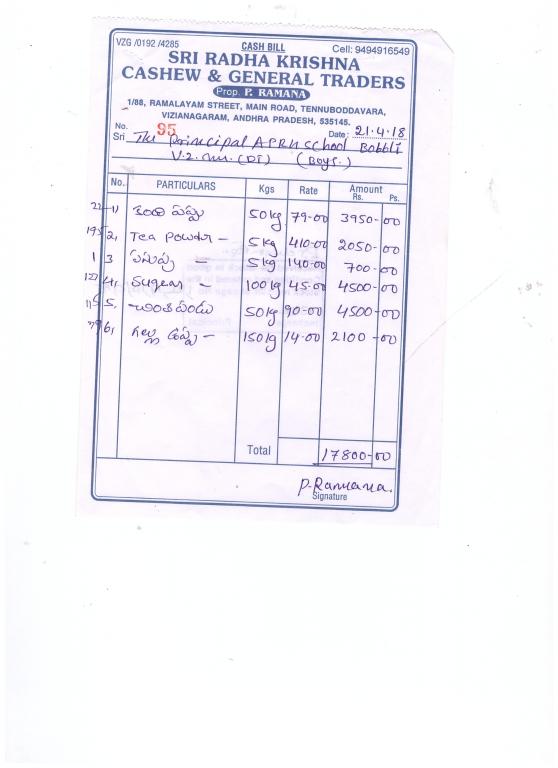 VZG /0192 /4285 CASH BILL Cell: 9494916549
SRI RADHA KRISHNA
CASHEW & GENERAL TRADERS
Prop. P. RAMANA
1/88, RAMALAYAM STREET, MAIN ROAD, TENNUBODDAVARA,
VIZIANAGARAM, ANDHRA PRADESH, 535145.
No. 95 Date: 21.4.18
Sri The Principal APRH School Bobbli
(Boys.)
No. PARTICULARS Kgs Rate Amount
Rs. Ps.
1) కంది పప్పు 50 kg 79-00 3950-00
2, Tea Powder - 5 kg 410-00 2050-00
3 పసుపు - 5 kg 140-00 700-00
4, Sugear - 100 kg 45-00 4500-00
5. చింతపండు 50 kg 90-00 4500-00
6, గల్లు ఉప్పు - 150 kg 14-00 2100-00
Total 17800-00
P. Ramana.
Signature